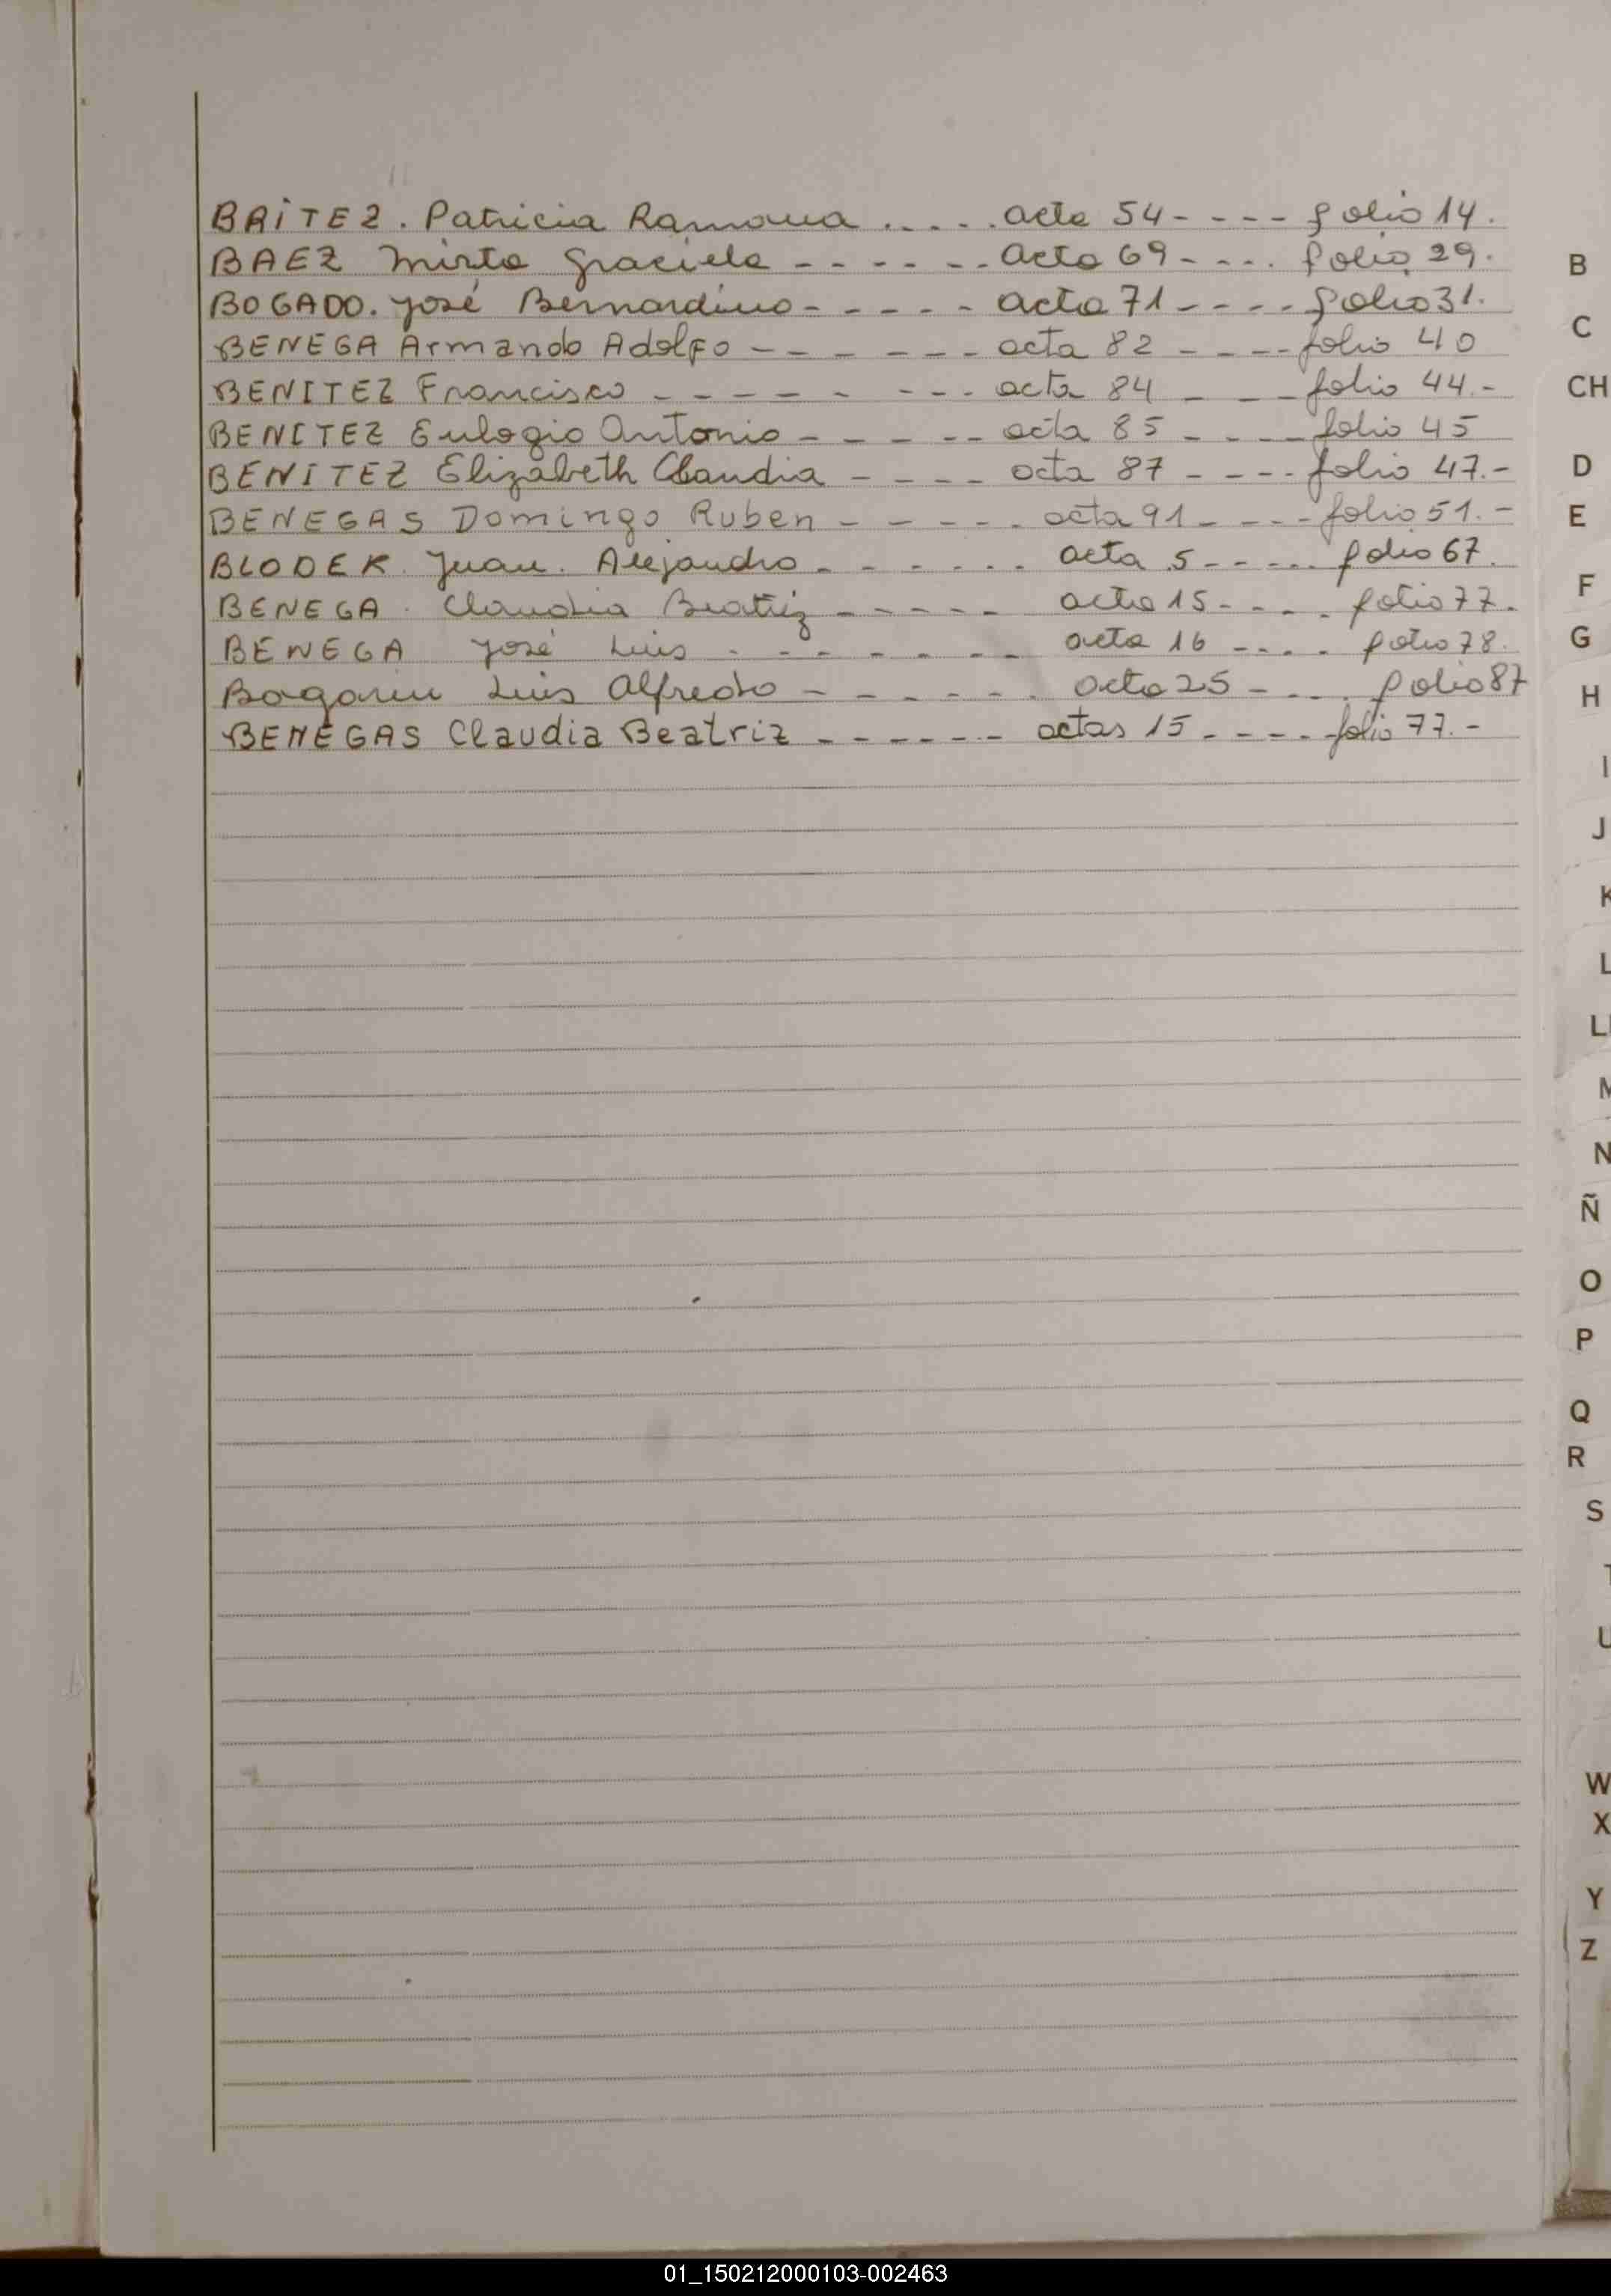 BAITEZ. Patricia Ramona ..... acta 54 - - - - folio 14.
BAEZ Mirta Graciela - - - - - - - acta 69 - - - - folio 29.
BOGADO. José Bernardino - - - - - acta 71 - - - - folio 31.
BENEGA Armando Adolfo - - - - - - - acta 82 - - - - folio 40
BENITEZ Francisco - - - - - - - - acta 84 - - - folio 44.-
BENITEZ Eulogio Antonio - - - - - acta 85 - - - - folio 45
BENITEZ Elizabeth Claudia - - - - acta 87 - - - - folio 47.-
BENEGAS Domingo Ruben - - - - - acta 91 - - - - folio 51.-
BLODEK. Juan. Alejandro - - - - - - acta 5 - - - - - folio 67.
BENEGA. Claudia Beatriz - - - - - acta 15 - - - - folio 77.
BENEGA José Luis - - - - - - - acta 16 - - - - folio 78.
Bogarin Luis Alfredo - - - - - - acta 25 - - - - folio 87
BENEGAS Claudia Beatriz - - - - - - actas 15 - - - - folio 77.-
B
C
CH
D
E
F
G
H
I
J
K
L
Ll
M
N
Ñ
O
P
Q
R
S
T
U
W
X
Y
Z
01_150212000103-002463